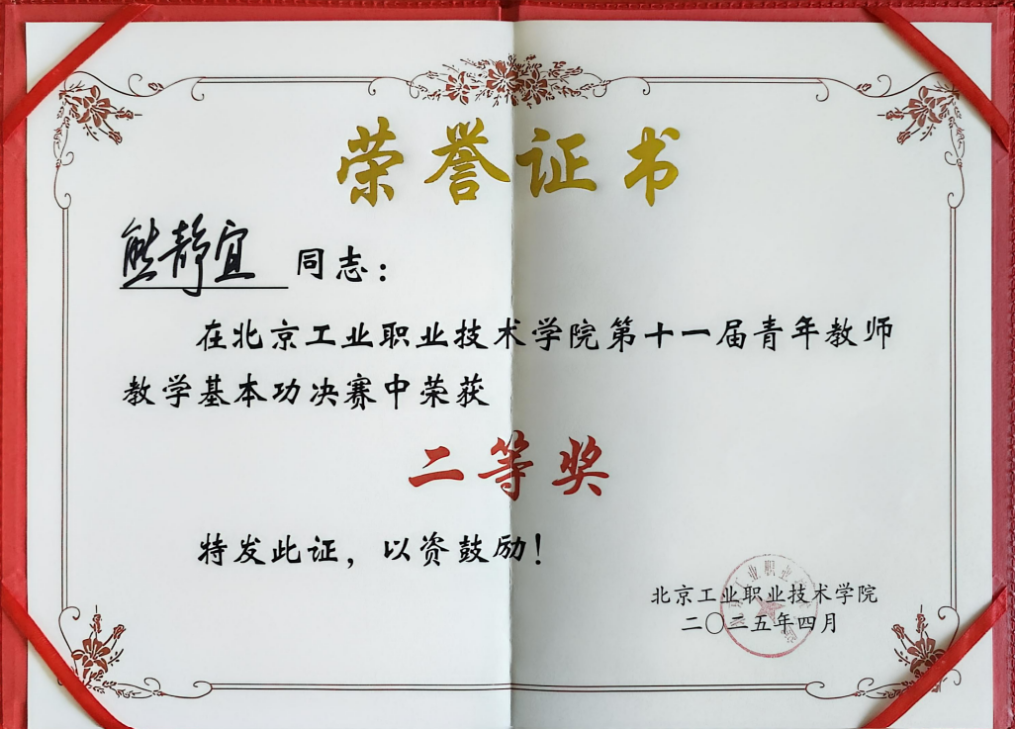 荣誉证书
熊静宜 同志：
在北京工业职业技术学院第十一届青年教师
教学基本功决赛中荣获
二等奖
特发此证，以资鼓励！
北京工业职业技术学院
二〇二五年四月